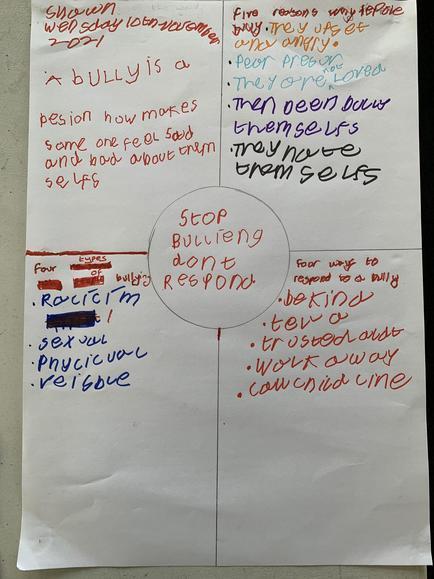 Shown
Wensday 10th November
2021
A bully is a
pesion how makes
some one feel sad
and bad about them
selfs
five reasons why pepole
bully. They upset
and angry.
• Pear presur
• They are not loved
• Then been bully
themselfs
• They hate
them selfs
STOP
BULLIENG
dont
RESPOND
four types
of bullying
• Racicim
• sexual
• Phycicual
• veisble
four ways to
respond to a bully
• be kind
• tell a
• trusted adult
• Walk away
• call child line